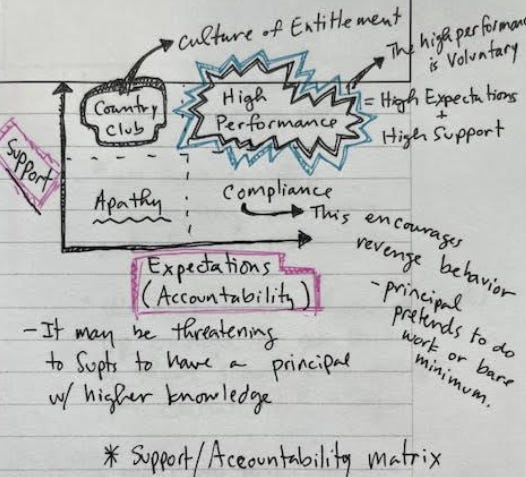 culture of Entitlement
The high performance
is Voluntary
Country
Club
High
Performance
= High Expectations
+
High Support
Support
Apathy
Compliance
This encourages
revenge behavior
- principal
pretends to do
work or bare
minimum.
Expectations
(Accountability)
- It may be threatening
to Supts to have a principal
w/ higher knowledge
* Support/Accountability matrix